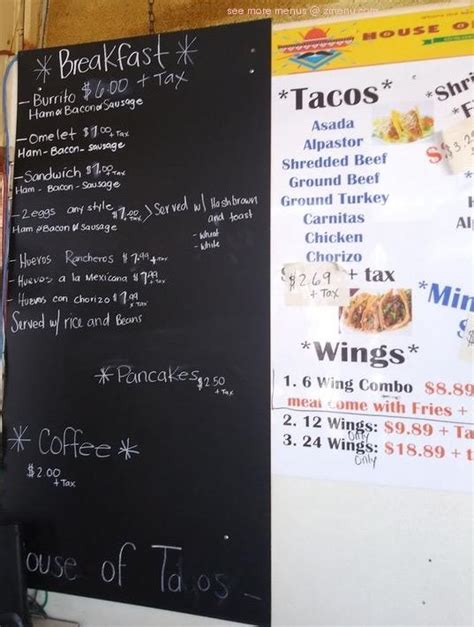 see more menus @ zmenu.com
* Breakfast *
- Burrito $6.00 + Tax
Ham or Bacon or Sausage
- Omelet $7.00 + Tax
Ham - Bacon - Sausage
- Sandwich $7.00 + Tax
Ham - Bacon - Sausage
- 2 eggs any style $7.00 + Tax > Served w/ Hashbrown
and toast
Ham or Bacon or Sausage
- wheat
- white
- Huevos Rancheros $7.99 + Tax
- Huevos a la Mexicana $7.99 + Tax
- Huevos con chorizo $7.99 + Tax
Served w/ rice and Beans
* Pancakes $2.50
+ Tax
* Coffee *
$2.00
+ Tax
ouse of Tacos
HOUSE O
*Tacos*
Asada
Alpastor
Shredded Beef
Ground Beef
Ground Turkey
Carnitas
Chicken
Chorizo
$2.69 + tax
+ Tax
*Shri
*F
$3.2
*Min
*Wings*
1. 6 Wing Combo $8.89
meal come with Fries +
2. 12 Wings: $9.89 + Ta
only
3. 24 Wings: $18.89 + t
only